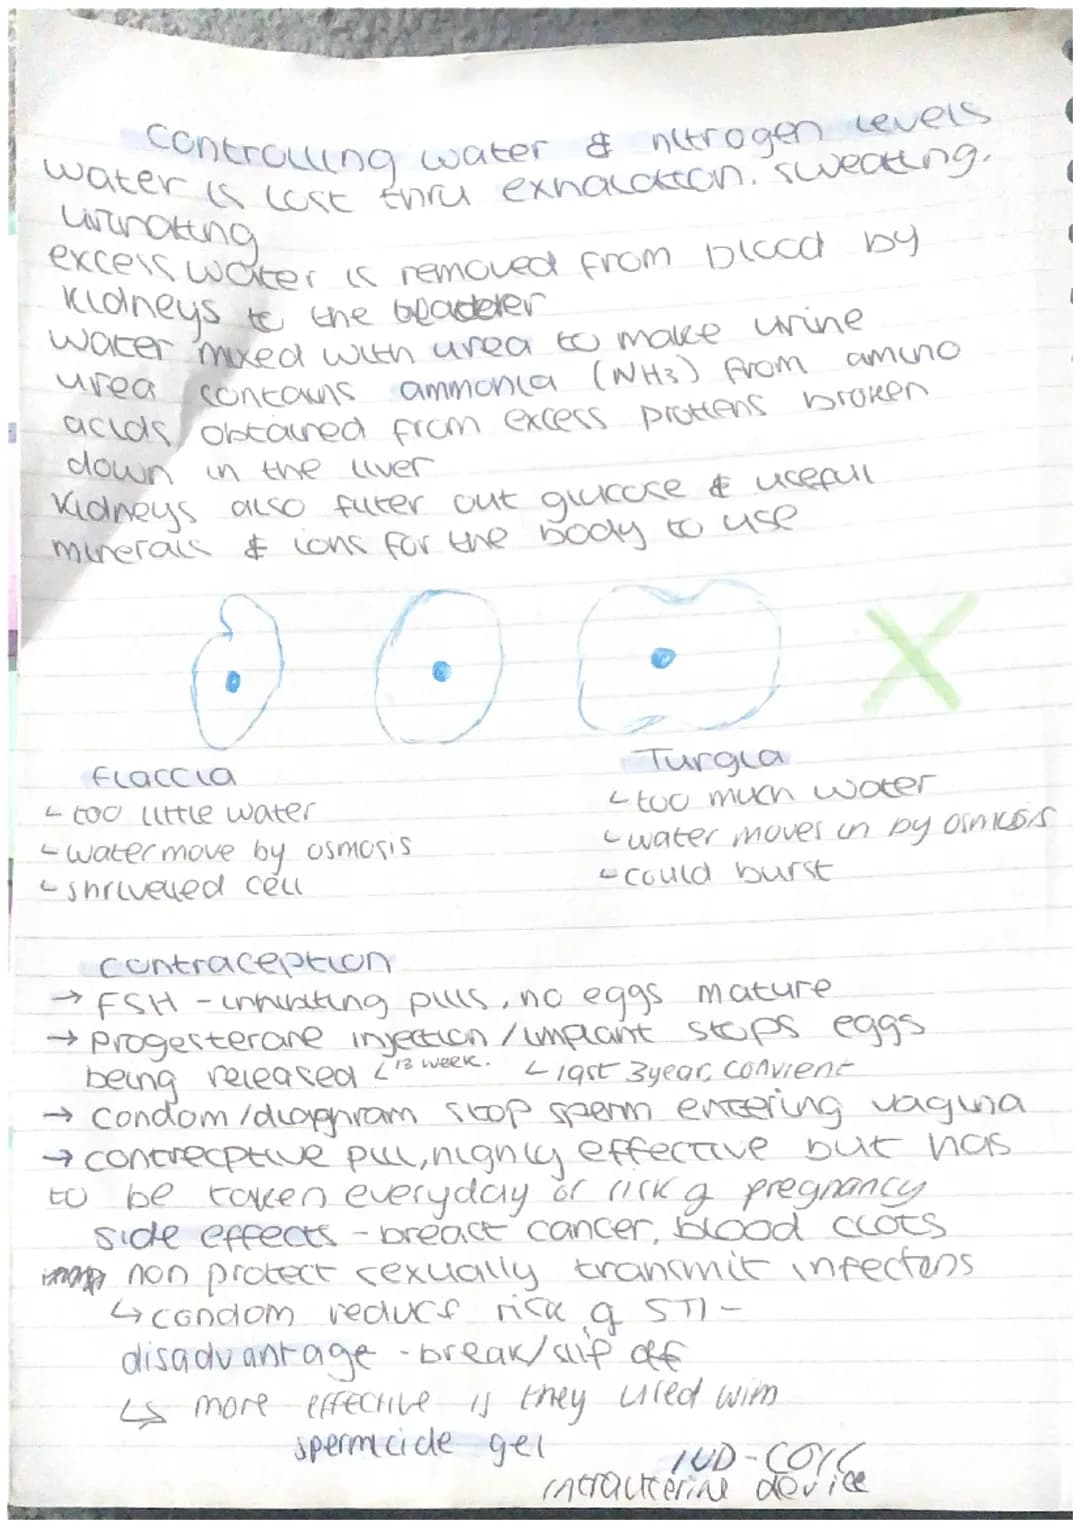 Controlling water & nitrogen levels
water is lost thru exhalation. sweating.
urinating
excess water is removed from blood by
kidneys to the bladder
water mixed with urea to make urine
urea contains ammonia (NH3) from amino
acids, obtained from excess protiens broken
down in the liver
Kidneys also filter out glucose & usefull
minerals & ions for the body to use
Flaccid
Turgid
too little water
too much water
water move by osmosis
water moves in by osmosis
shrivelled cell
could burst
contraception
→ FSH - inhibiting pills, no eggs mature
→ Progesterone injection/implant stops eggs
being released 13 week. last 3year, convient
→ condom/diaphram stop sperm entering vagina
→ contrecptive pill, highly effective but has
to be taken everyday or risk of pregnancy
side effects - breast cancer, blood clots
non protect sexually transmit infectons
↳ condom reducs risk of STI -
disadvantage - break/slip off
↳ more effective is they used with
spermicide gel
IUD - coil
intrauterine device